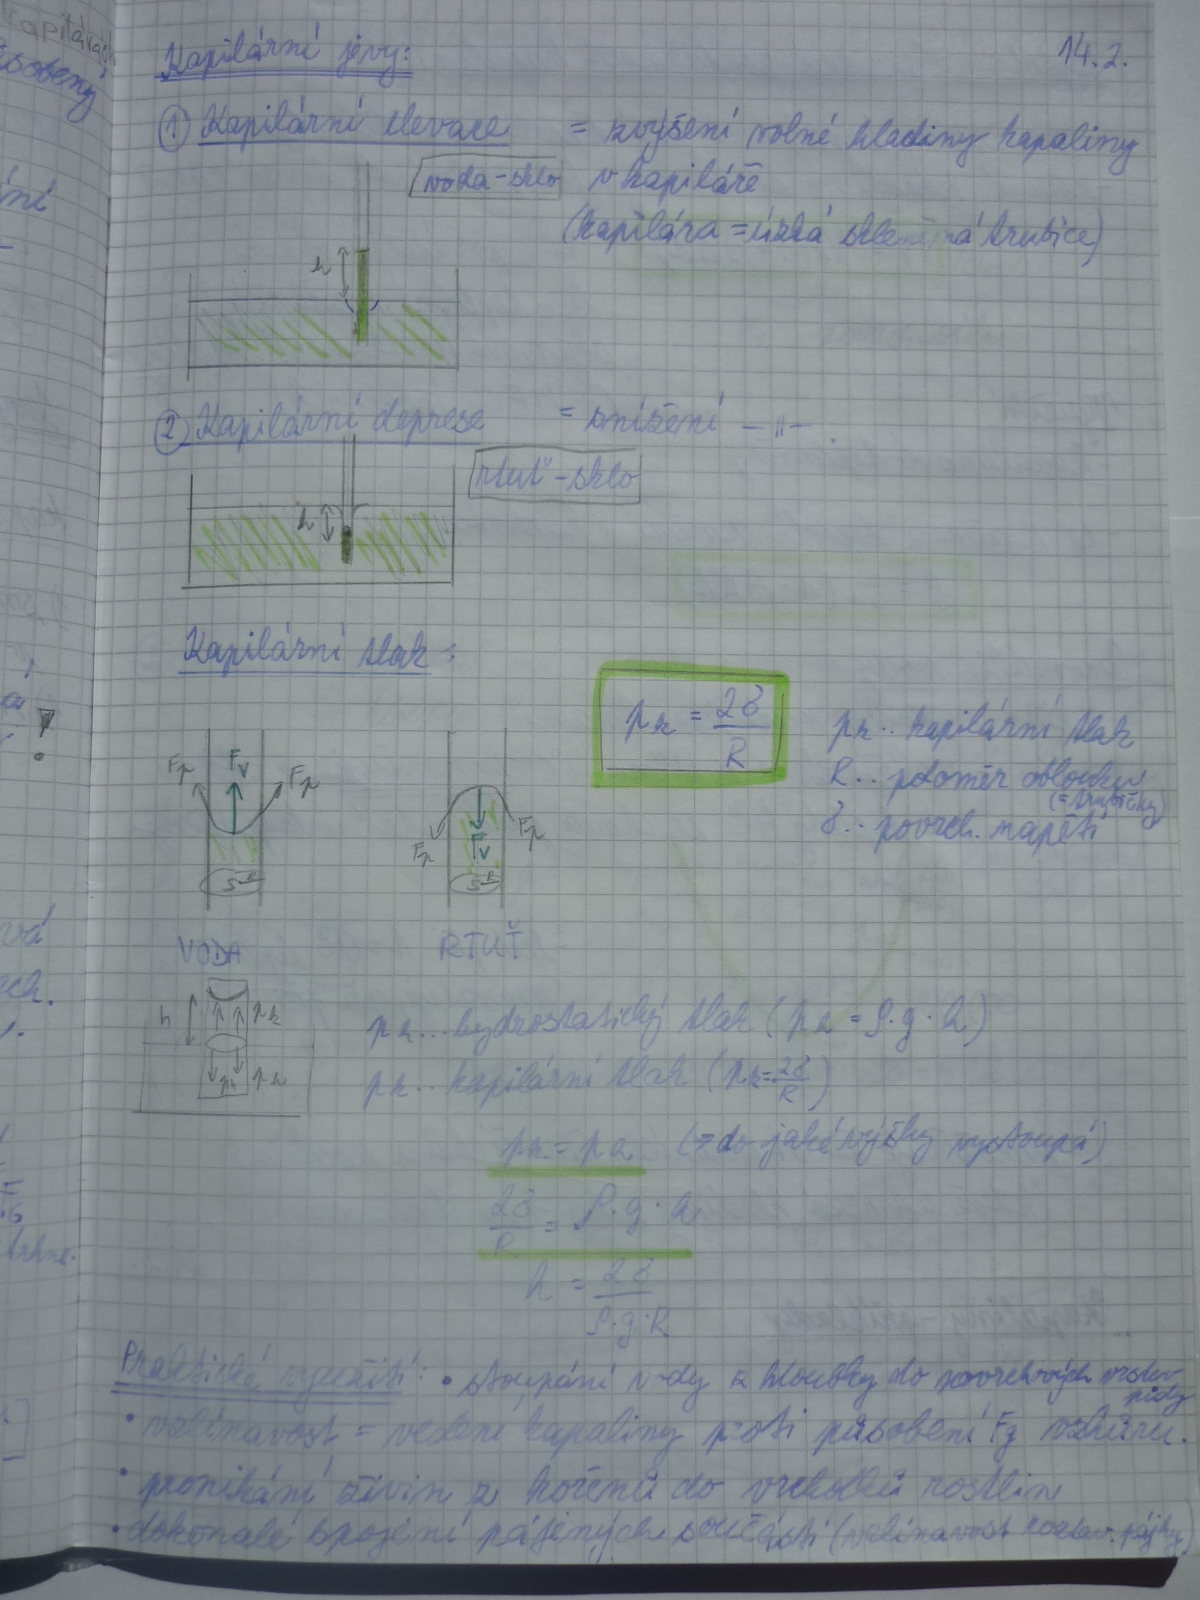 Kapilární jevy:
14.2.
① Kapilární elevace = zvýšení volné hladiny kapaliny
voda-sklo v kapiláře
(kapilára = úzká skleněná trubice)
h
② Kapilární deprese = snížení -||- .
rtuť-sklo
h
Kapilární tlak:
pk = 2δ/R
pk.. kapilární tlak
R.. poloměr oblouku
(=trubičky)
δ.. povrch. napětí
Fp Fv Fp
Fp Fv Fp
S
S
VODA RTUŤ
h pk
ph ph
ph... hydrostatický tlak (ph = ρ·g·h)
pk.. kapilární tlak (pk=2δ/R)
pk = ph (=do jaké výšky vystoupá)
2δ/R = ρ·g·h
h = 2δ/ρ·g·R
Praktické využití: • stoupání vody z hloubky do povrchových vrstev
půdy
• vzlínavost = vedení kapaliny proti působení Fg vzhůru.
• pronikání živin z kořenů do vrcholků rostlin
• dokonalé spojení pájených součástí (vzlínavost roztav. pájky)